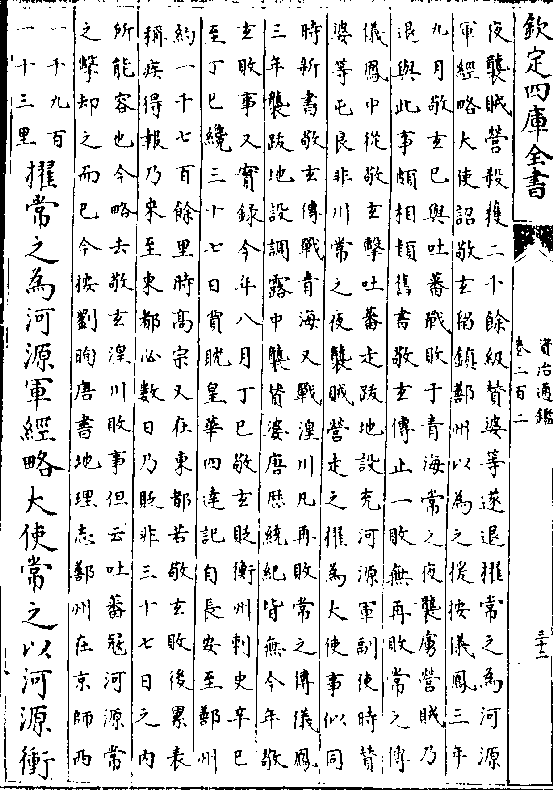 欽定四庫全書
資治通鑑
卷二百二
三十二
夜襲賊營殺獲二千餘級贊婆等遂退擢常之為河源
軍經略大使詔敬玄留鎮鄯州以為之援按儀鳳三年
九月敬玄已與吐蕃戰敗于青海常之夜襲虜營賊乃
退與此事頗相類舊書敬玄傳止一敗無再敗常之傳
儀鳳中從敬玄擊吐蕃走跋地設充河源軍副使時贊
婆等屯良非川常之夜襲賊營走之擢為大使事似同
時新書敬玄傳戰青海又戰湟川凡再敗常之傳儀鳳
三年襲跋地設調露中襲贊婆唐厯統紀皆無今年敬
玄敗事又實録今年八月丁巳敬玄貶衡州刺史辛巳
至丁巳纔三十七日賈耽皇華四達記自長安至鄯州
約一千七百餘里時高宗又在東都若敬玄敗後累表
稱疾得報乃來至東都必數日乃貶非三十七日之内
所能容也今略去敬玄湟川敗事但云吐蕃冦河源常
之擊却之而已今按劉昫唐書地理志鄯州在京師西
一千九百
一十三里
擢常之為河源軍經略大使常之以河源衝